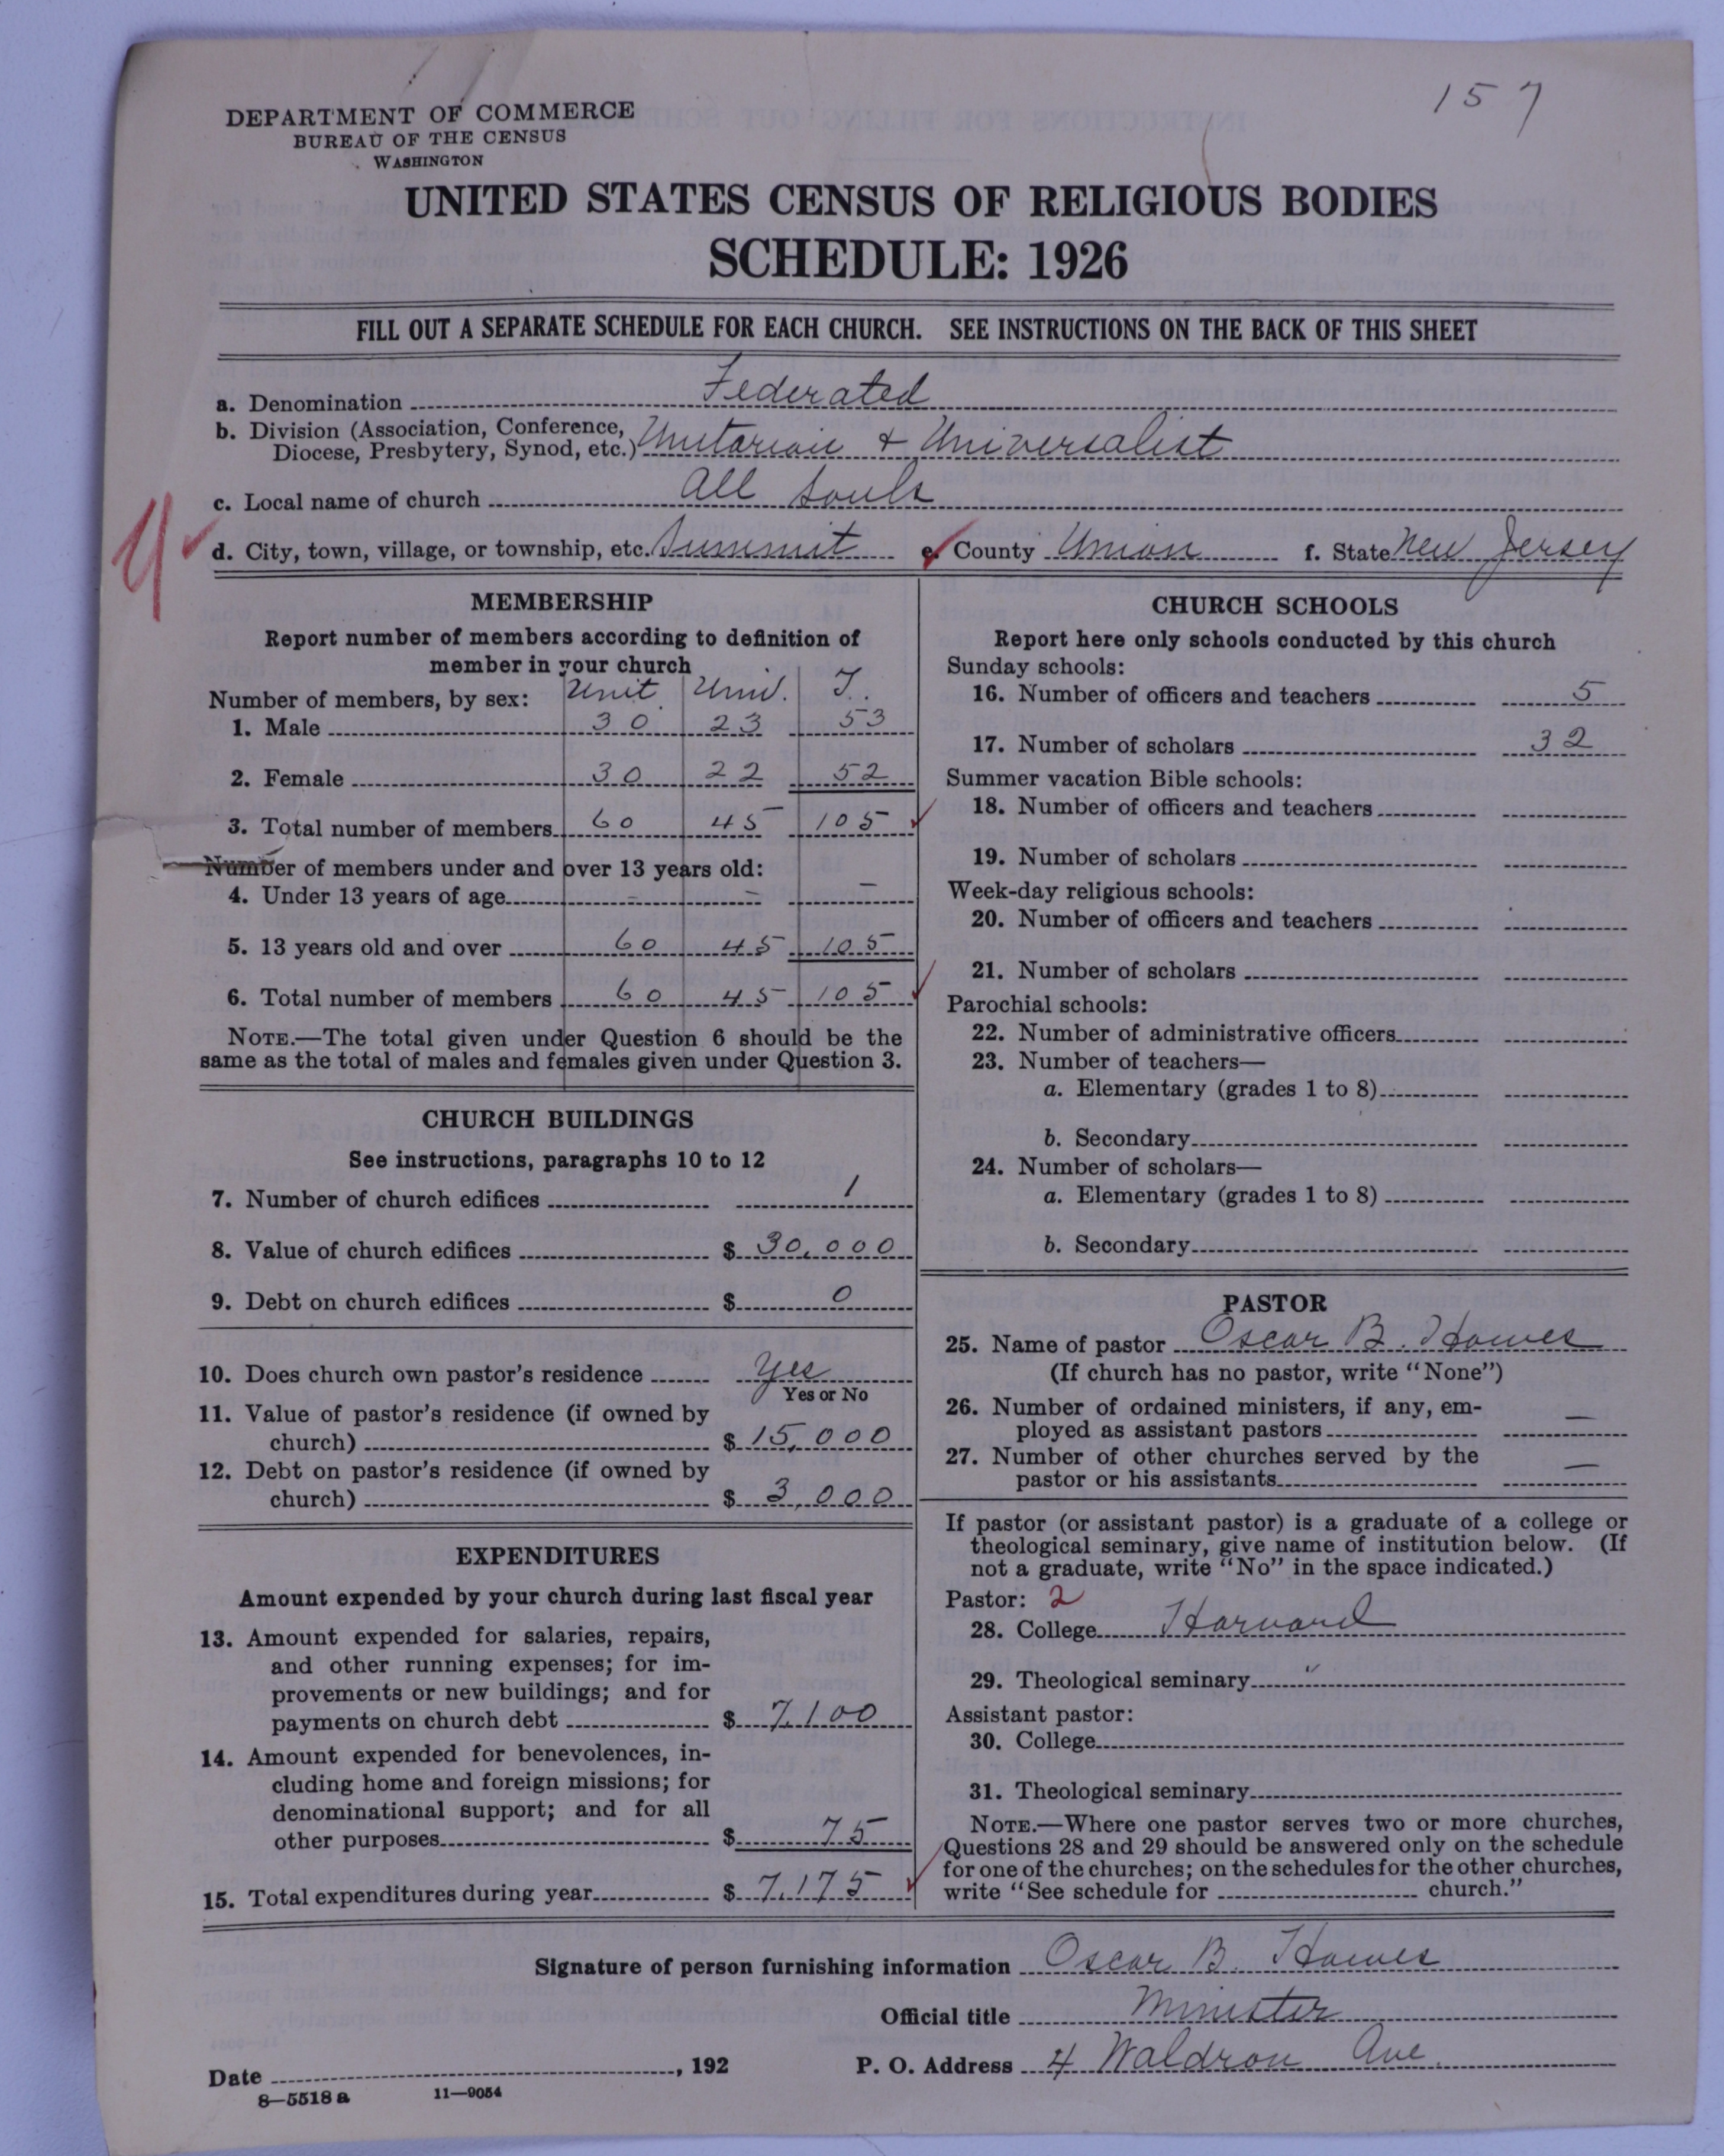 157
DEPARTMENT OF COMMERCE
BUREAU OF THE CENSUS
WASHINGTON
UNITED STATES CENSUS OF RELIGIOUS BODIES
SCHEDULE: 1926
FILL OUT A SEPARATE SCHEDULE FOR EACH CHURCH. SEE INSTRUCTIONS ON THE BACK OF THIS SHEET
a. Denomination Federated
b. Division (Association, Conference,
Diocese, Presbytery, Synod, etc.) Unitarian & Universalist
c. Local name of church All Souls
d. City, town, village, or township, etc. Summit e. County Union f. State New Jersey
MEMBERSHIP
Report number of members according to definition of
member in your church
Number of members, by sex: Unit. Univ. T.
1. Male 30 23 53
2. Female 30 22 52
3. Total number of members 60 45 105
Number of members under and over 13 years old:
4. Under 13 years of age - - -
5. 13 years old and over 60 45 105
6. Total number of members 60 45 105
NOTE.—The total given under Question 6 should be the
same as the total of males and females given under Question 3.
CHURCH BUILDINGS
See instructions, paragraphs 10 to 12
7. Number of church edifices 1
8. Value of church edifices $ 30,000
9. Debt on church edifices $ 0
10. Does church own pastor's residence Yes
Yes or No
11. Value of pastor's residence (if owned by
church) $ 15,000
12. Debt on pastor's residence (if owned by
church) $ 3,000
EXPENDITURES
Amount expended by your church during last fiscal year
13. Amount expended for salaries, repairs,
and other running expenses; for im-
provements or new buildings; and for
payments on church debt $ 7,100
14. Amount expended for benevolences, in-
cluding home and foreign missions; for
denominational support; and for all
other purposes $ 75
15. Total expenditures during year $ 7,175
CHURCH SCHOOLS
Report here only schools conducted by this church
Sunday schools:
16. Number of officers and teachers 5
17. Number of scholars 32
Summer vacation Bible schools:
18. Number of officers and teachers
19. Number of scholars
Week-day religious schools:
20. Number of officers and teachers
21. Number of scholars
Parochial schools:
22. Number of administrative officers
23. Number of teachers—
a. Elementary (grades 1 to 8)
b. Secondary
24. Number of scholars—
a. Elementary (grades 1 to 8)
b. Secondary
PASTOR
25. Name of pastor Oscar B. Hawes
(If church has no pastor, write "None")
26. Number of ordained ministers, if any, em-
ployed as assistant pastors —
27. Number of other churches served by the
pastor or his assistants —
If pastor (or assistant pastor) is a graduate of a college or
theological seminary, give name of institution below. (If
not a graduate, write "No" in the space indicated.)
Pastor: 2
28. College Harvard
29. Theological seminary "
Assistant pastor:
30. College
31. Theological seminary
NOTE.—Where one pastor serves two or more churches,
Questions 28 and 29 should be answered only on the schedule
for one of the churches; on the schedules for the other churches,
write "See schedule for church."
Signature of person furnishing information Oscar B. Hawes
Official title Minister
Date , 192 P. O. Address 4 Waldron Ave.
8—5518 a 11—9054